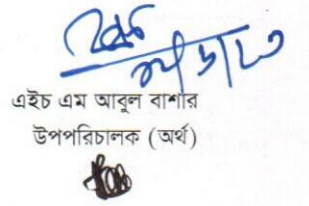 এইচ এম আবুল বাশার
উপপরিচালক (অর্থ)